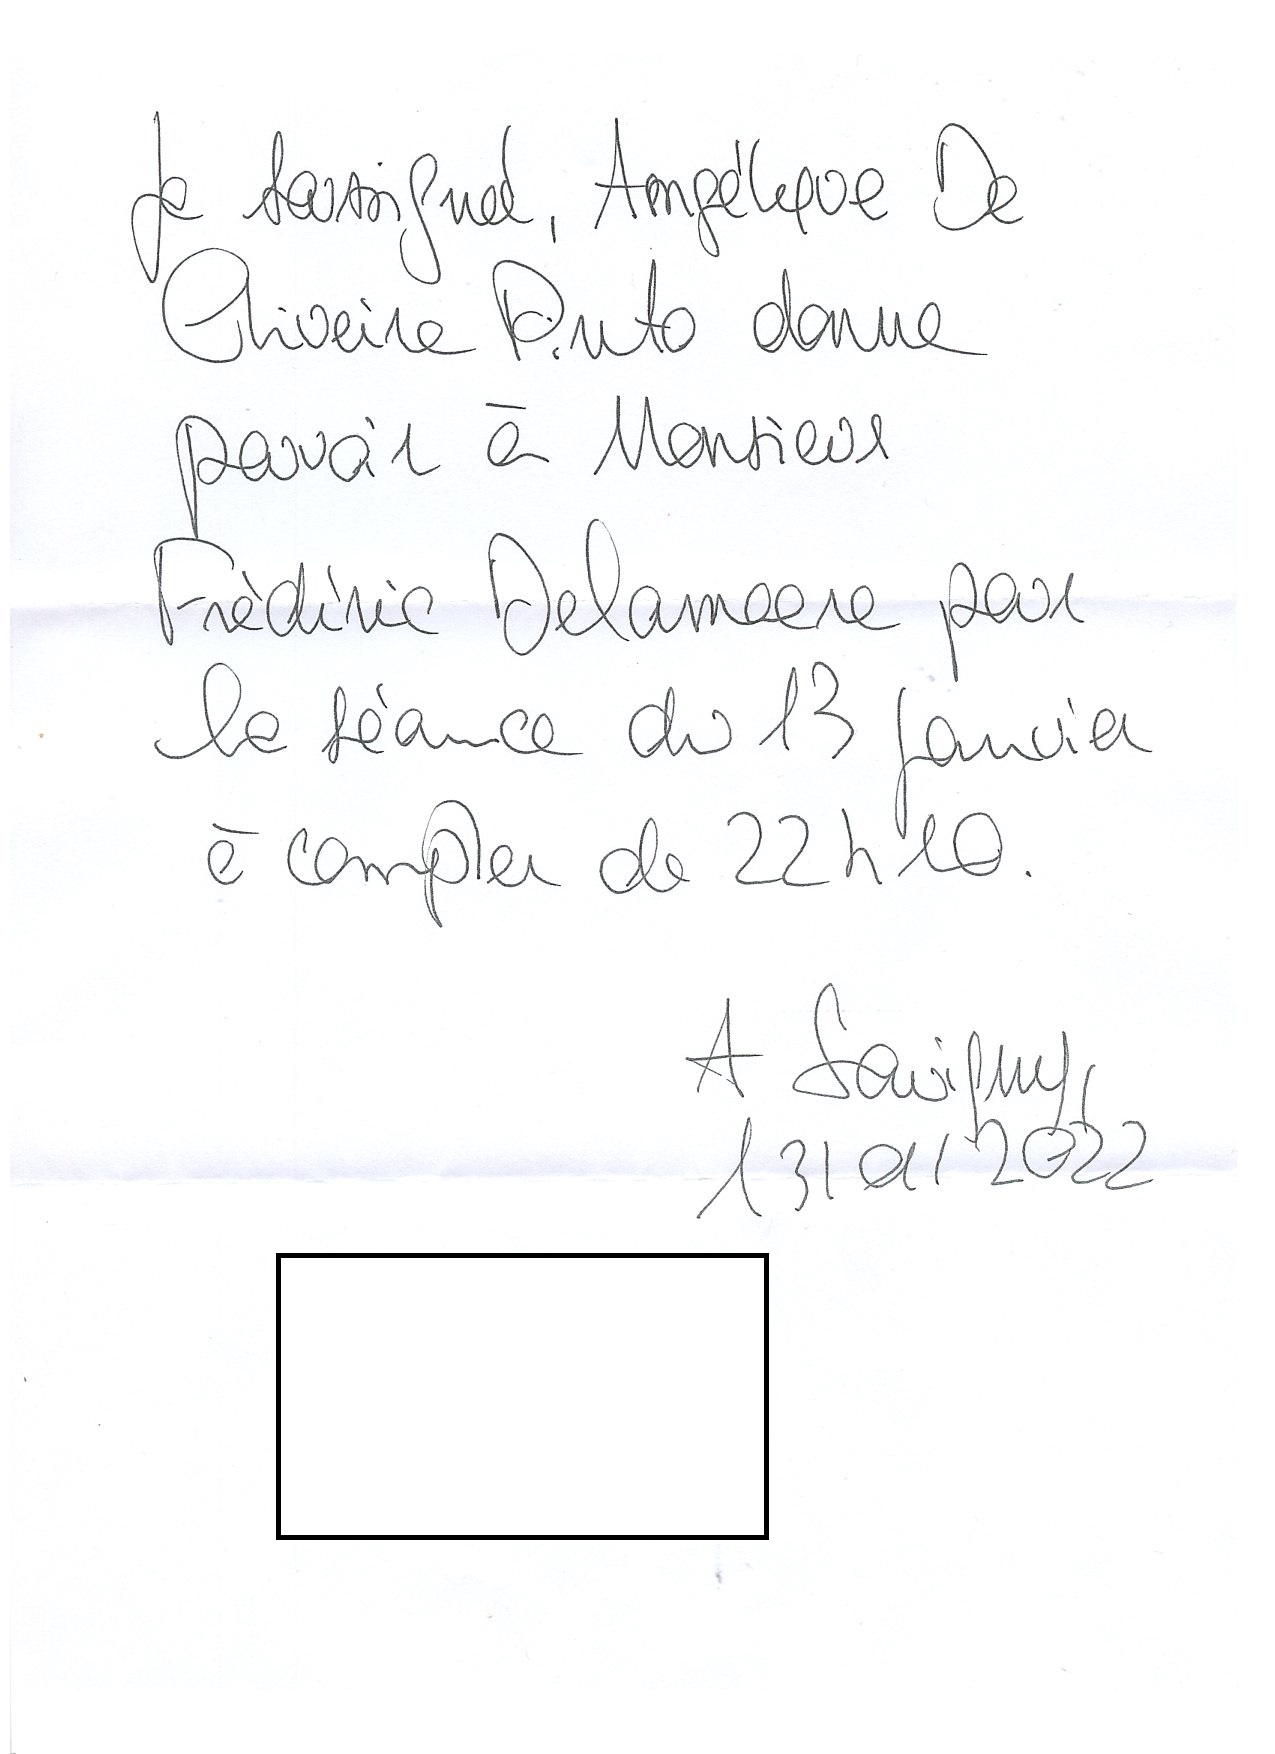 Je soussigneé, Angélique De
Oliveira Pinto donne
pouvoir à Monsieur
Frédéric Delameere pour
la séance du 13 janvier
à compter de 22h10.
A Savigny,
13/01/2022